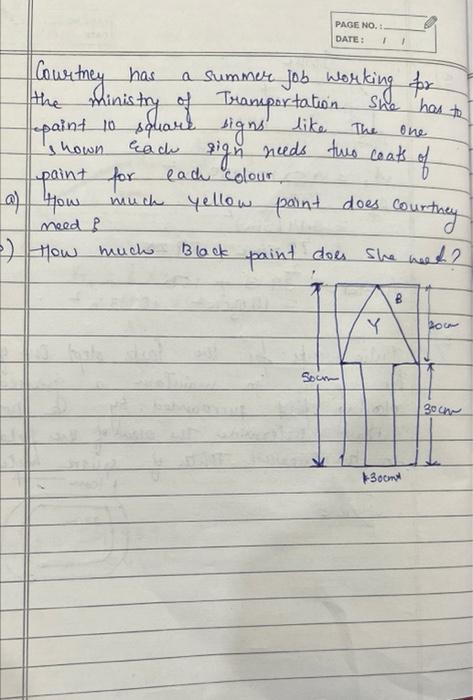 PAGE NO. :
DATE : / /
Courtney has a summer job working for
the ministry of Transportation She has to
paint 10 square signs like The one
shown Each sign needs two coats of
paint for each colour.
a) How much yellow paint does Courtney
need ?
b) How much Black paint does she need ?
B
Y
20cm
50cm
30cm
30cm